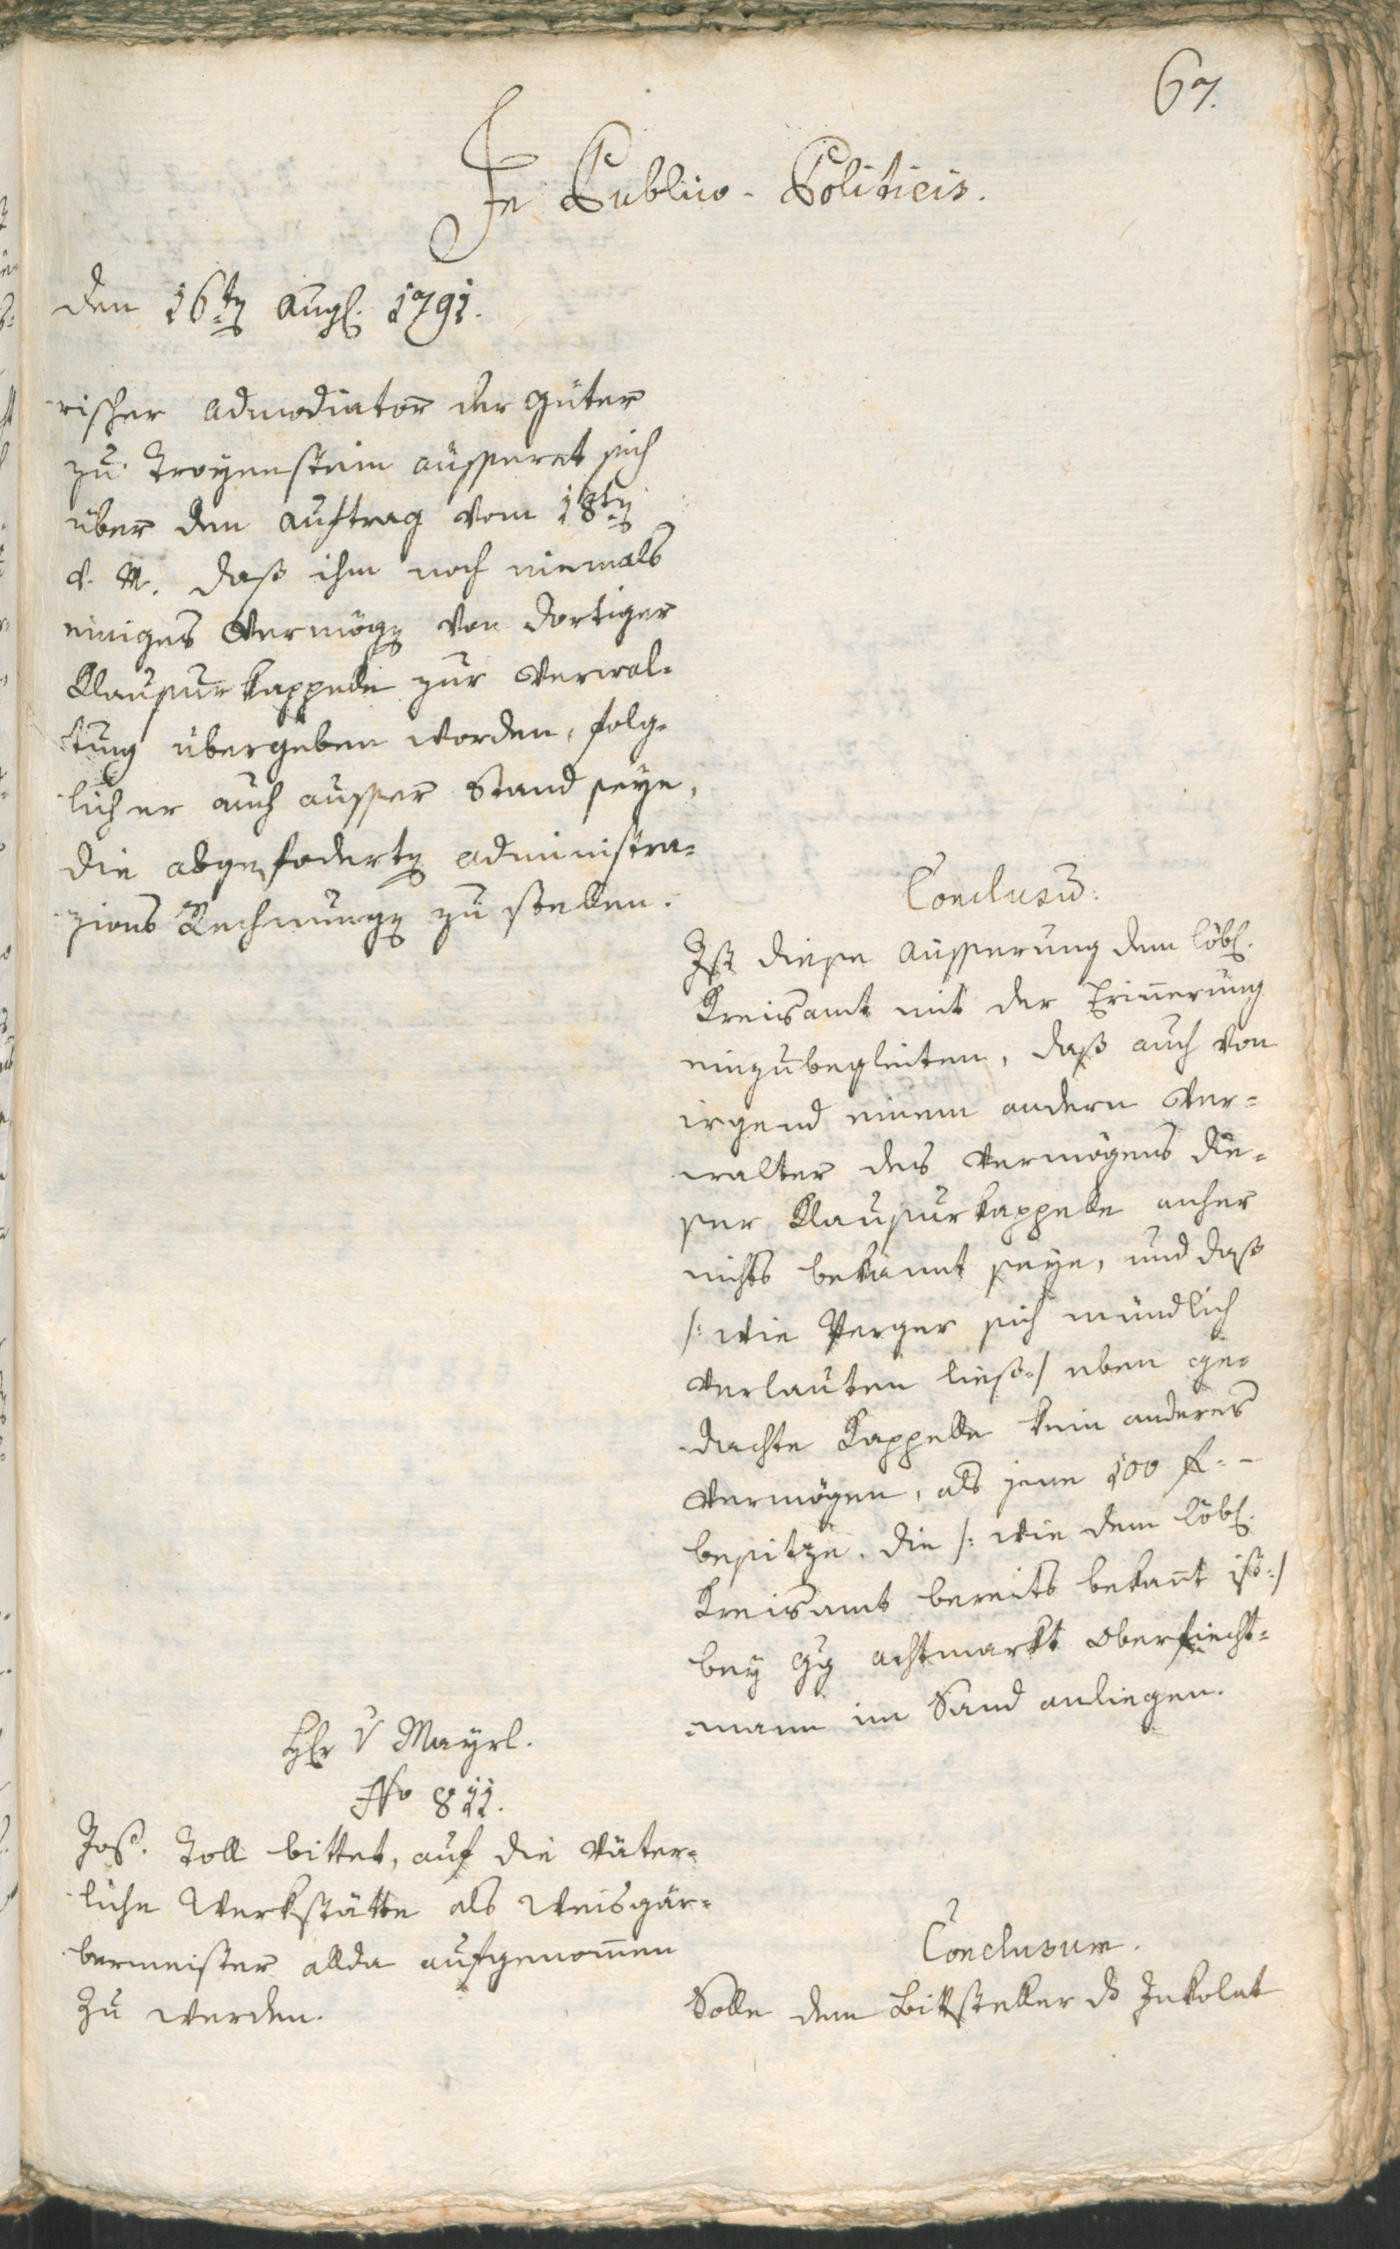 67.
In Publico-Politicis.
den 16tn Augl. 1791.
rischer admodiator der Güter
zu Troyenstein äusseret sich
über den Auftrag vom 18tn
v. M. daß ihm noch niemals
einiges Vermögn von dortiger
Klausurkappelle zur Verwal-
tung übergeben worden, folg-
lich er auch ausser Stand seye,
die abgefodertn administra-
zions Rechnungn zu stellen.
Conclusū:
Ist diese Äusserung dem löbl.
Kreisamt mit der Erinnerung
einzubegleiten, daß auch von
irgend einem andern Ver-
walter des Vermögens die-
ser Klausurkappelle anher
nichts bekannt seye, und daß
/: wie Perger sich mündlich
verlauten ließ :/ eben ge-
dachte Kappelle kein anderes
Vermögen, als jene 100 f. -
besitze, die /: wie dem löbl.
Kreisamt bereits bekant̄ ist :/
bey Gg Achtmarkt Oberfiecht-
mann im Sand anliegen.
Hr v Mayrl.
No 811.
Jos. Toll bittet, auf die väter-
liche Werkstätte als Weisgär-
bermeister allda aufgenom̄en
zu werden.
Conclusum.
Solle dem Bittsteller ds Inkolat